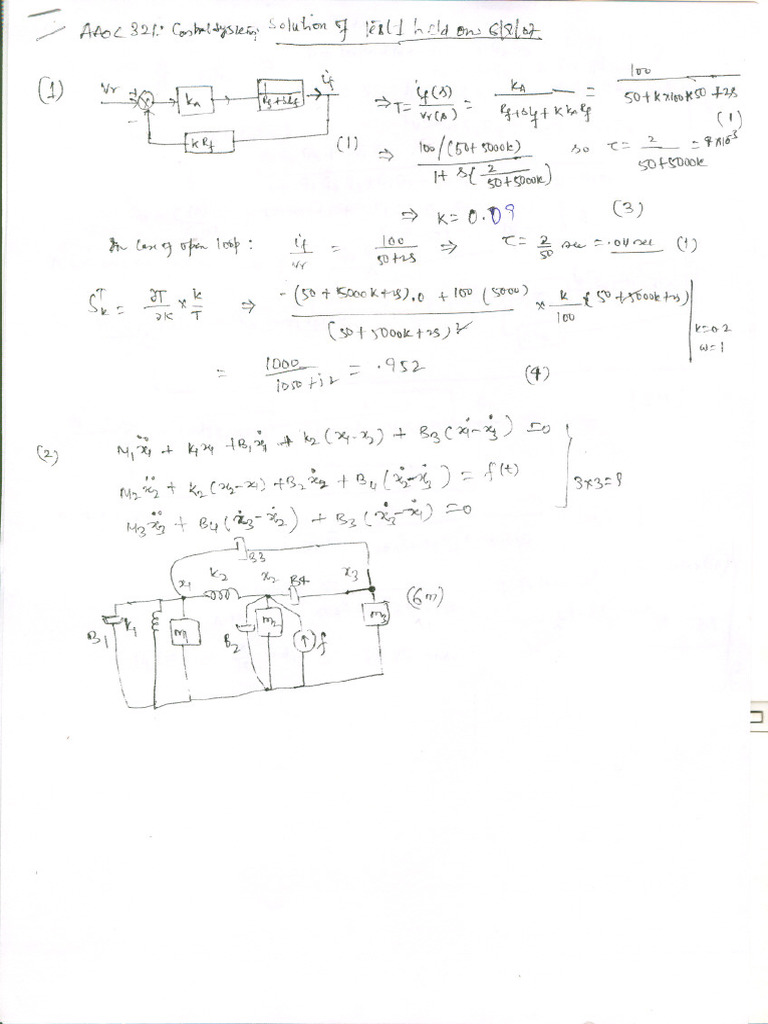 AAOC 321: Control system: Solution of Test-1 held on 6/8/07
(1) Vr + − KA 1 Rf+sLf if KRf (1)
⇒ T = if(s)/Vr(s) = KA/(Rf+sLf+K KA Rf) = 100/(50+K×100×50+2s) (1)
⇒ 100/(50+5000K) / 1+s(2/(50+5000K)) so τ = 2/(50+5000K) = 4×10⁻³
⇒ K = 0.09 (3)
In case of open loop: if/Vr = 100/(50+2s) ⇒ τ = 2/50 sec = .04 sec (1)
S_K^T = ∂T/∂K × K/T ⇒ −(50+5000K+2s).0 + 100(5000) / (50+5000K+2s)² × K/100 × (50+5000K+2s) | K=0.2 ω=1
= 1000/(1050+j2) = .952 (4)
(2) M₁ẍ₁ + K₁x₁ + B₁ẋ₁ + K₂(x₁−x₂) + B₃(ẋ₁−ẋ₃) = 0
M₂ẍ₂ + K₂(x₂−x₁) + B₂ẋ₂ + B₄(ẋ₂−ẋ₃) = f(t)
3×3=9
M₃ẍ₃ + B₄(ẋ₃−ẋ₂) + B₃(ẋ₃−ẋ₁) = 0
B3
x₁ K₂ x₂ B4 x₃
(6m)
B₁ K₁ m₁ B₂ m₂ f m₃